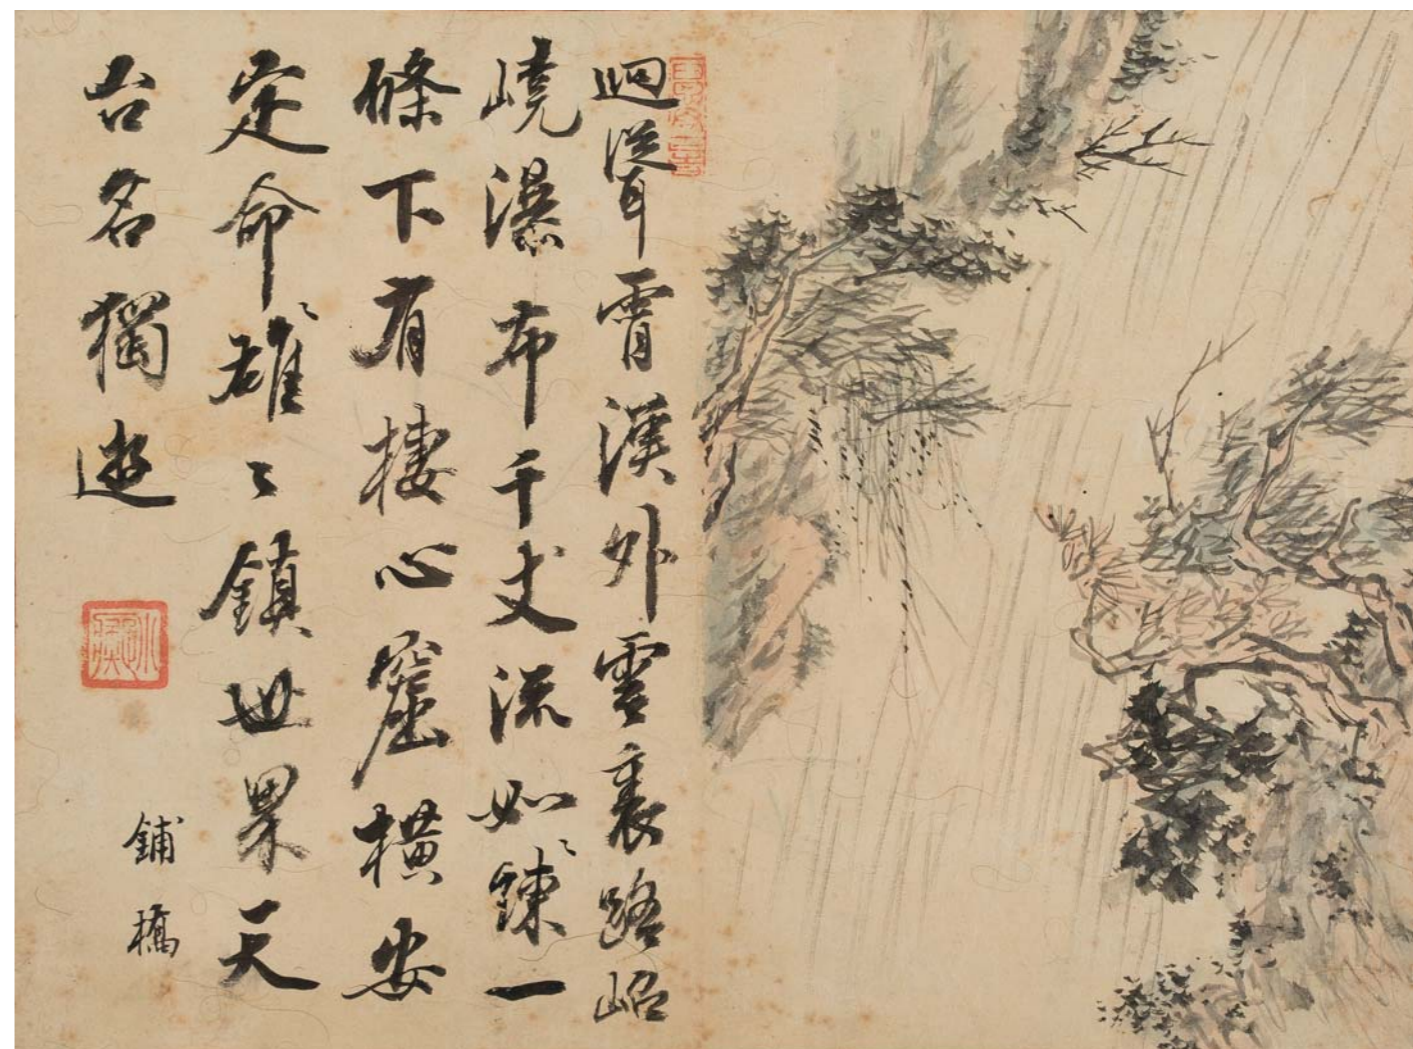 迥聳霄漢外雲裏路岧
嶢瀑布千丈流如鍊一
條下有棲心窟橫安
定命雄〻鎮世界天
台名獨遊
鋪
橋